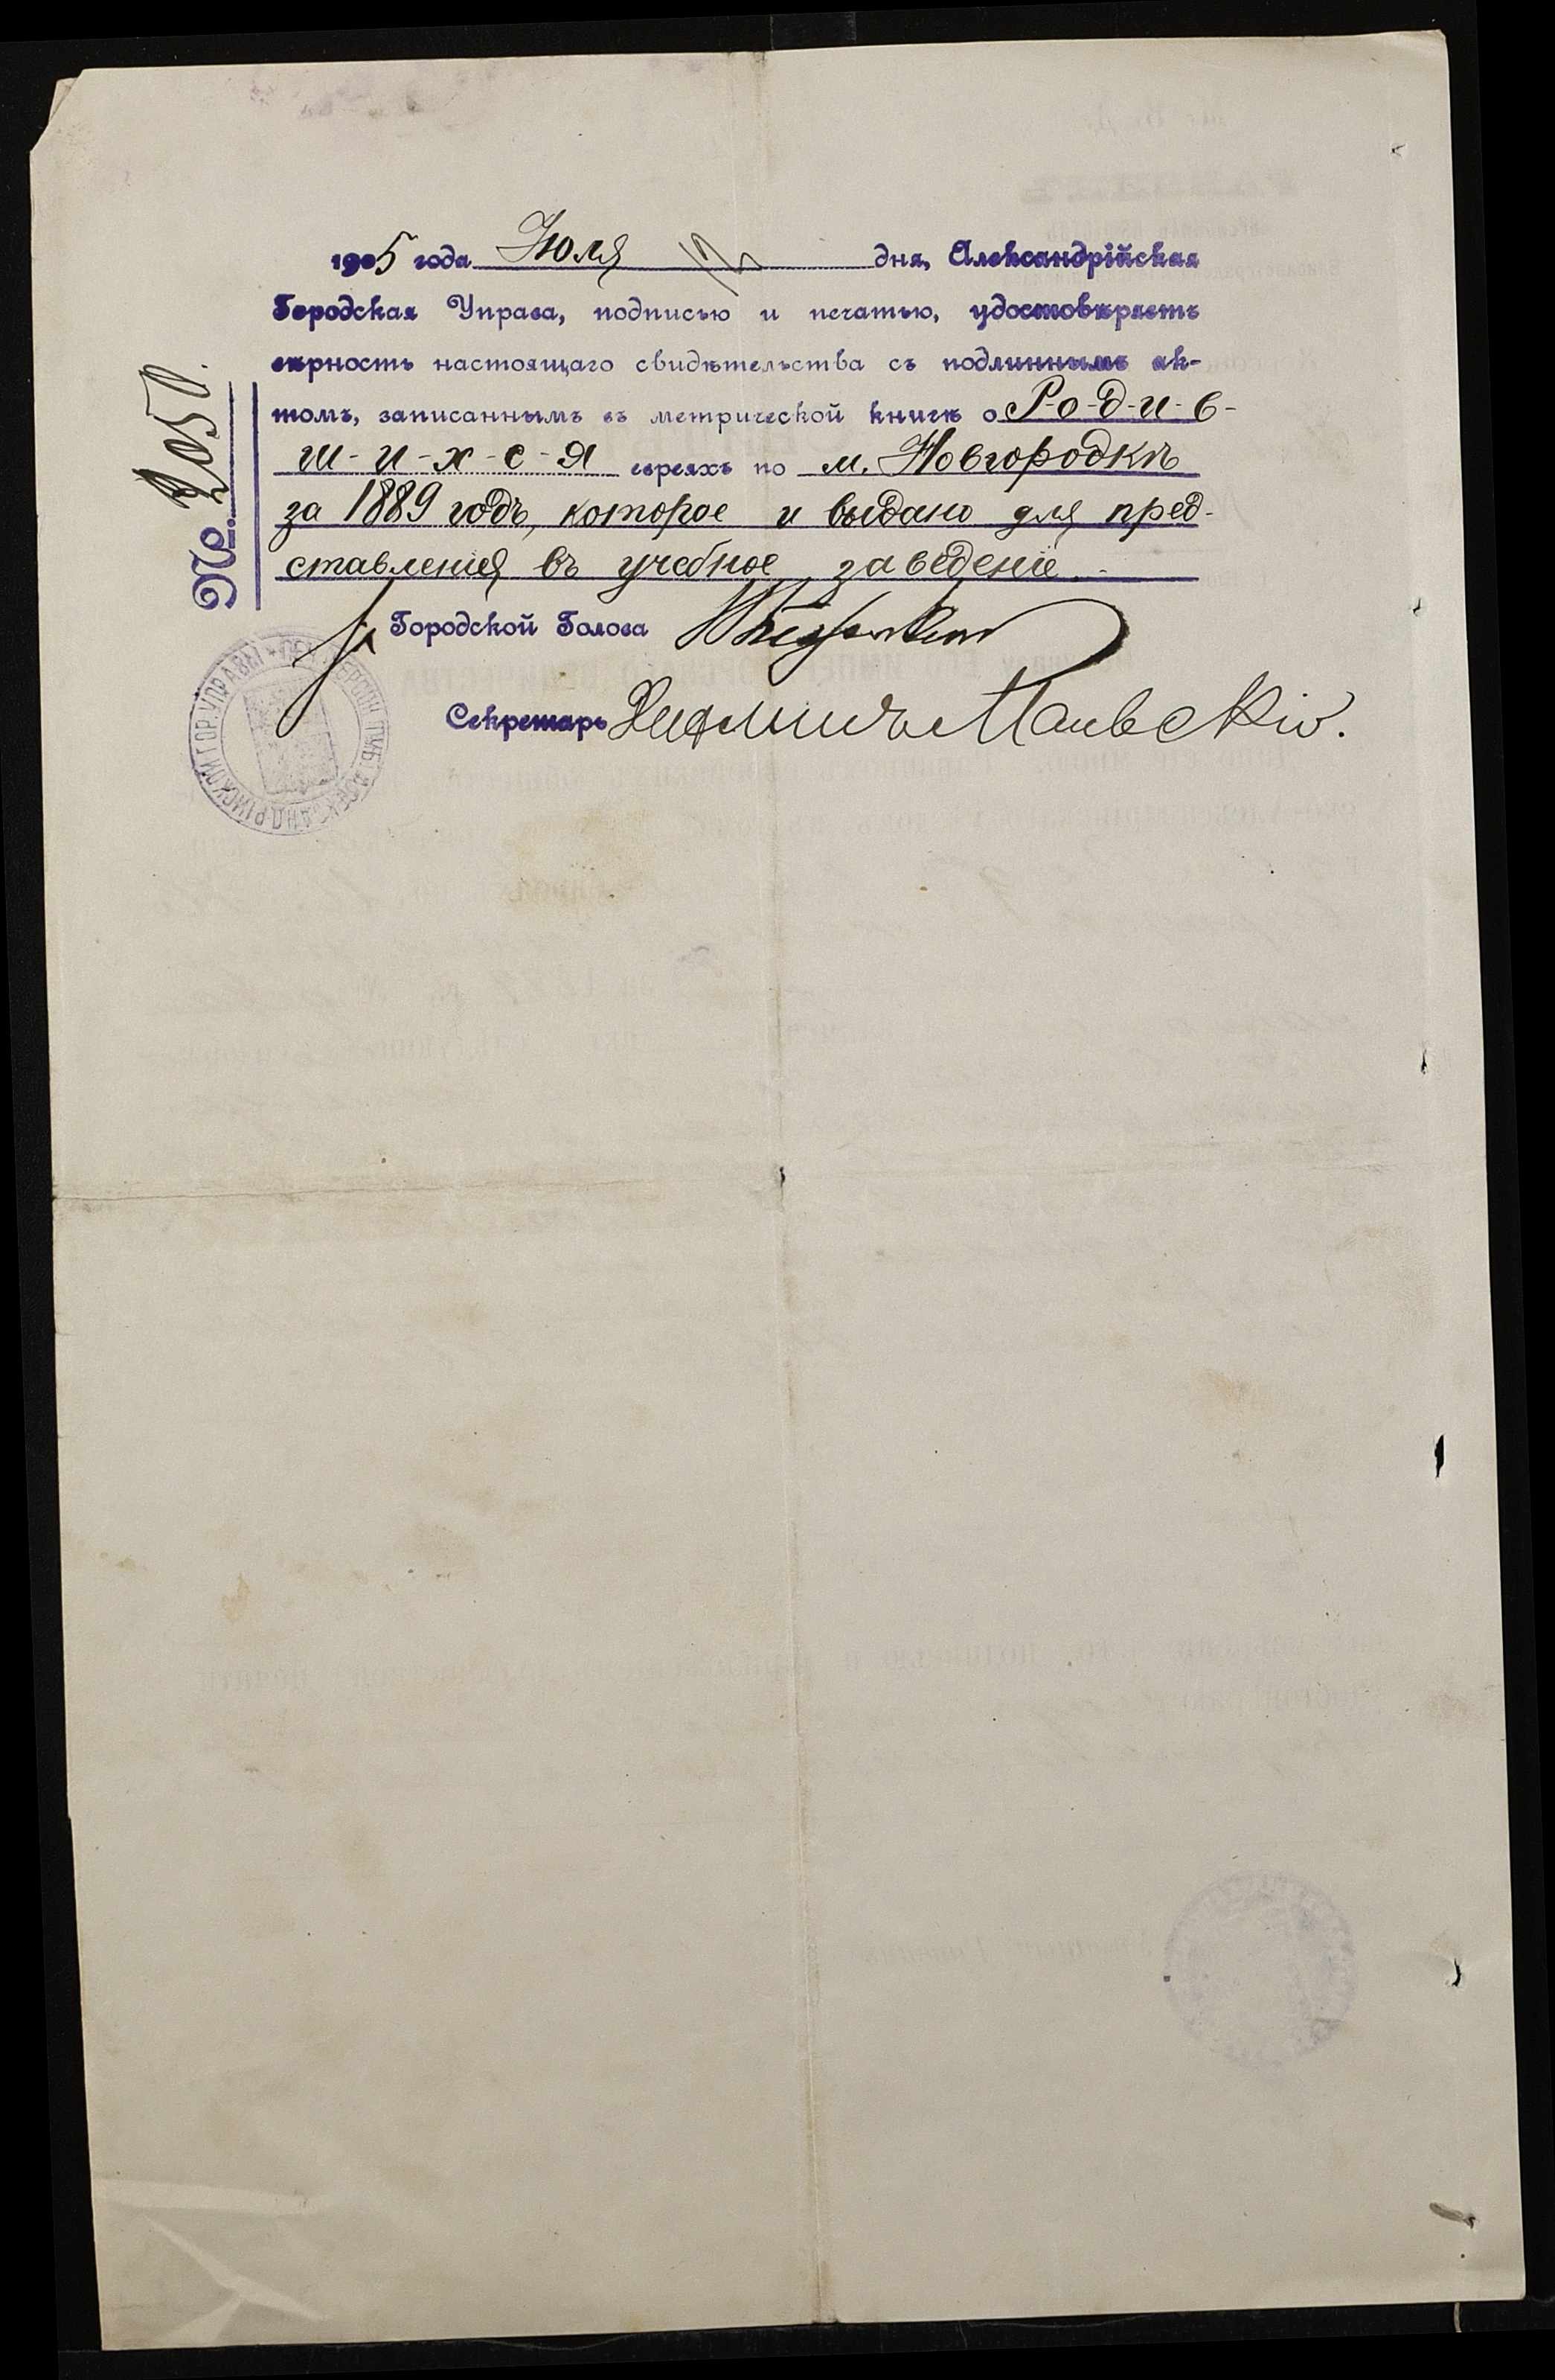 1905 года Июля 12 дня, Александрійская
Городская Управа, подписью и печатью, удостовѣряетъ
вѣрность настоящаго свидѣтельства съ подлиннымъ ак-
томъ, записаннымъ въ метрической книгѣ о Р-о-д-и-в-
ш-и-х-с-я евреяхъ по м. Новгородкѣ
за 1889 годъ, которое и выдано для пред-
ставленія въ учебное заведеніе.
№ 2050.
Городской Голова
Секретарь
АЛЕКСАНДРІЙСКОЙ ГОР. УПРАВЫ